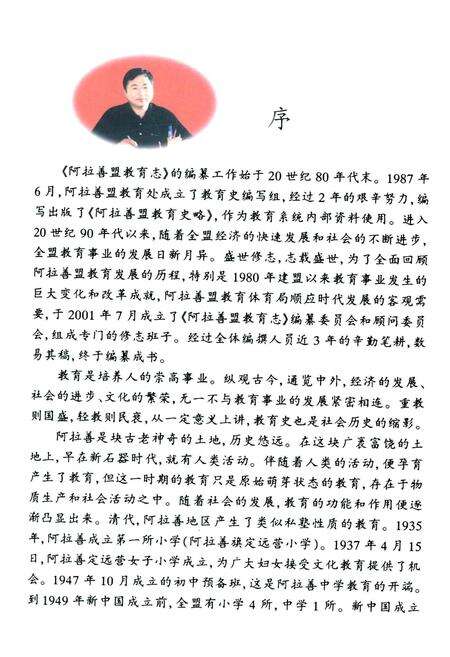 序
《阿拉善盟教育志》的编纂工作始于 20 世纪 80 年代末。1987 年
6 月,阿拉善盟教育处成立了教育史编写组,经过 2 年的艰辛努力,编
写出版了《阿拉善盟教育史略》,作为教育系统内部资料使用。进入
20 世纪 90 年代以来,随着全盟经济的快速发展和社会的不断进步,
全盟教育事业的发展日新月异。盛世修志,志载盛世,为了全面回顾
阿拉善盟教育发展的历程,特别是 1980 年建盟以来教育事业发生的
巨大变化和改革成就,阿拉善盟教育体育局顺应时代发展的客观需
要,于 2001 年 7 月成立了《阿拉善盟教育志》编纂委员会和顾问委员
会,组成专门的修志班子。经过全体编撰人员近 3 年的辛勤笔耕,数
易其稿,终于编纂成书。
教育是培养人的崇高事业。纵观古今,通览中外,经济的发展、
社会的进步、文化的繁荣,无一不与教育事业的发展紧密相连。重教
则国盛,轻教则民衰,从一定意义上讲,教育史也是社会历史的缩影。
阿拉善是块古老神奇的土地,历史悠远。在这块广袤富饶的土
地上,早在新石器时代,就有人类活动。伴随着人类的活动,便孕育
产生了教育,但这一时期的教育只是原始萌芽状态的教育,存在于物
质生产和社会活动之中。随着社会的发展,教育的功能和作用便逐
渐凸显出来。清代,阿拉善地区产生了类似私塾性质的教育。1935
年,阿拉善成立第一所小学(阿拉善旗定远营小学)。1937 年 4 月 15
日,阿拉善定远营女子小学成立,为广大妇女接受文化教育提供了机
会。1947 年 10 月成立的初中预备班,这是阿拉善中学教育的开端。
到 1949 年新中国成立前,全盟有小学 4 所,中学 1 所。新中国成立